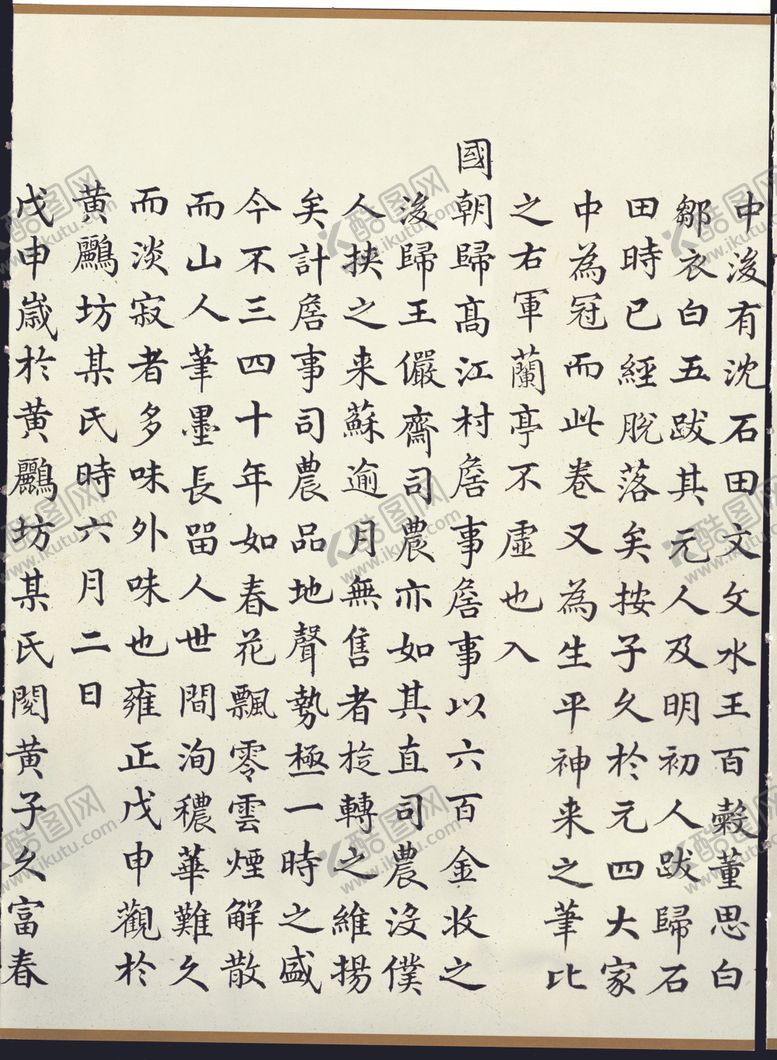 中後有沈石田文文水王百穀董思白
鄒衣白五跋其元人及明初人跋歸石
田時已經脫落矣按子久於元四大家
中為冠而此卷又為生平神来之筆比
之右軍蘭亭不虛也入
國朝歸髙江村詹事詹事以六百金收之
後歸王儼齋司農亦如其直司農沒僕
人挾之来蘇逾月無售者旋轉之維揚
矣計詹事司農品地聲勢極一時之盛
今不三四十年如春花飄零雲煙解散
而山人筆墨長留人世間洵穠華難久
而淡寂者多味外味也雍正戊申觀於
黄鸝坊某氏時六月二日
戊申嵗於黄鸝坊某氏閱黄子久富春
酷图网
www.ikutu.com